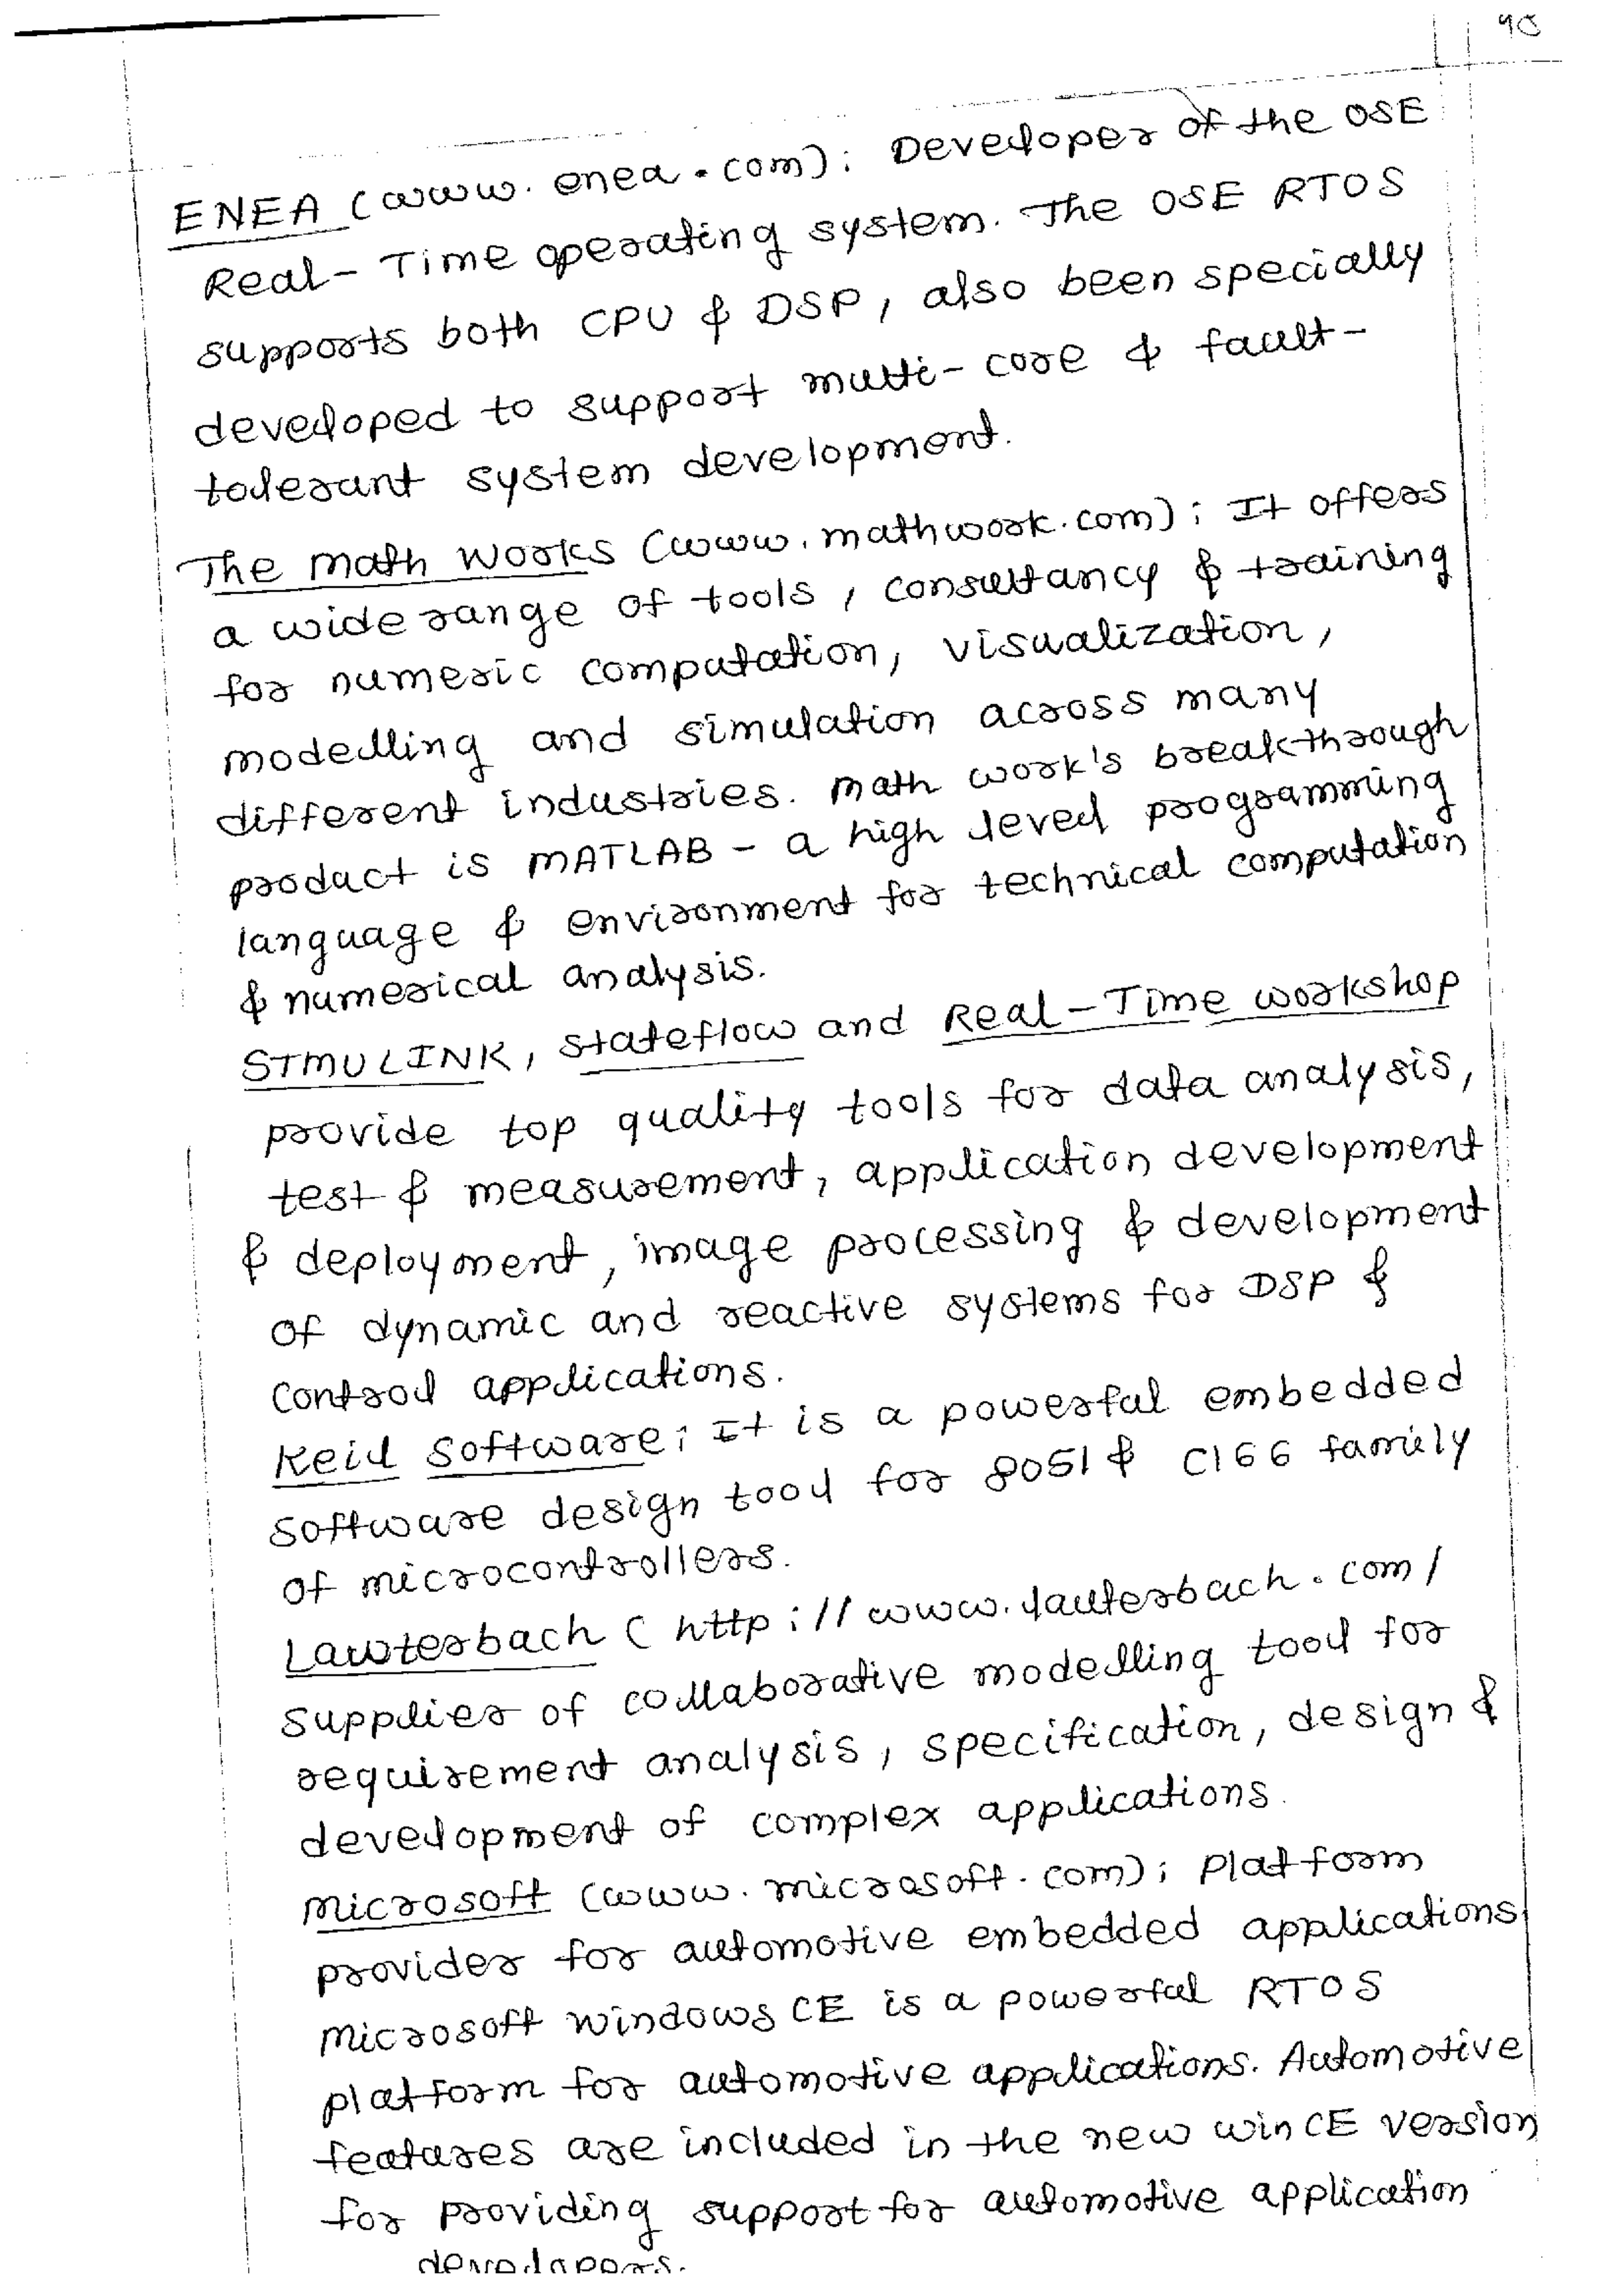 ENEA (www.enea.com): Developer of the OSE
Real-Time operating system. The OSE RTOS
supports both CPU & DSP, also been specially
developed to support multi-core & fault-
tolerant system development.
The math works (www.mathwork.com): It offers
a wide range of tools, consultancy & training
for numeric computation, visualization,
modelling and simulation across many
different industries. Math work's breakthrough
product is MATLAB - a high level programming
language & environment for technical computation
& numerical analysis.
STMULINK, stateflow and Real-Time workshop
provide top quality tools for data analysis,
test & measurement, application development
& deployment, image processing & development
of dynamic and reactive systems for DSP &
control applications.
Keil software: It is a powerful embedded
software design tool for 8051 & C166 family
of microcontrollers.
Lawterbach (http://www.lauterbach.com/
supplier of collaborative modelling tool for
requirement analysis, specification, design &
development of complex applications.
microsoft (www.microsoft.com): platform
provider for automotive embedded applications.
microsoft windows CE is a powerful RTOS
platform for automotive applications. Automotive
features are included in the new win CE version
for providing support for automotive application
developers.